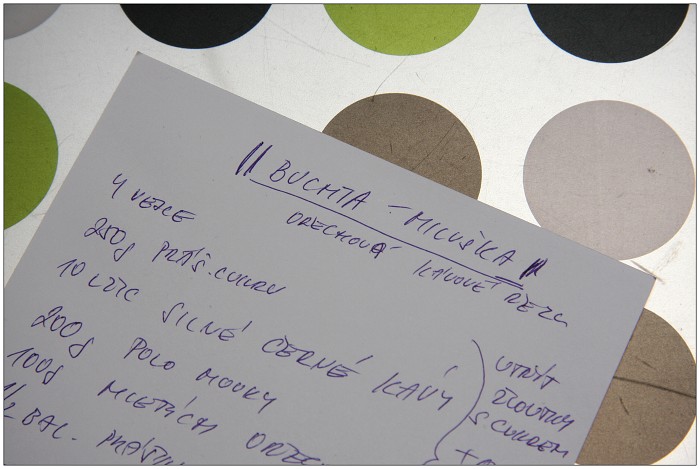 BUCHTA - MILUŠKA
OŘECHOVÁ KÁVOVÉ ŘEZY
4 VEJCE
250g PRÁŠ. CUKRU
10 LŽIC SILNÉ ČERNÉ KÁVY
200g POLO MOUKY
100g MLETÝCH
1/2 BAL.
UTŘÍT
ŽLOUTKY
S CUKREM
+